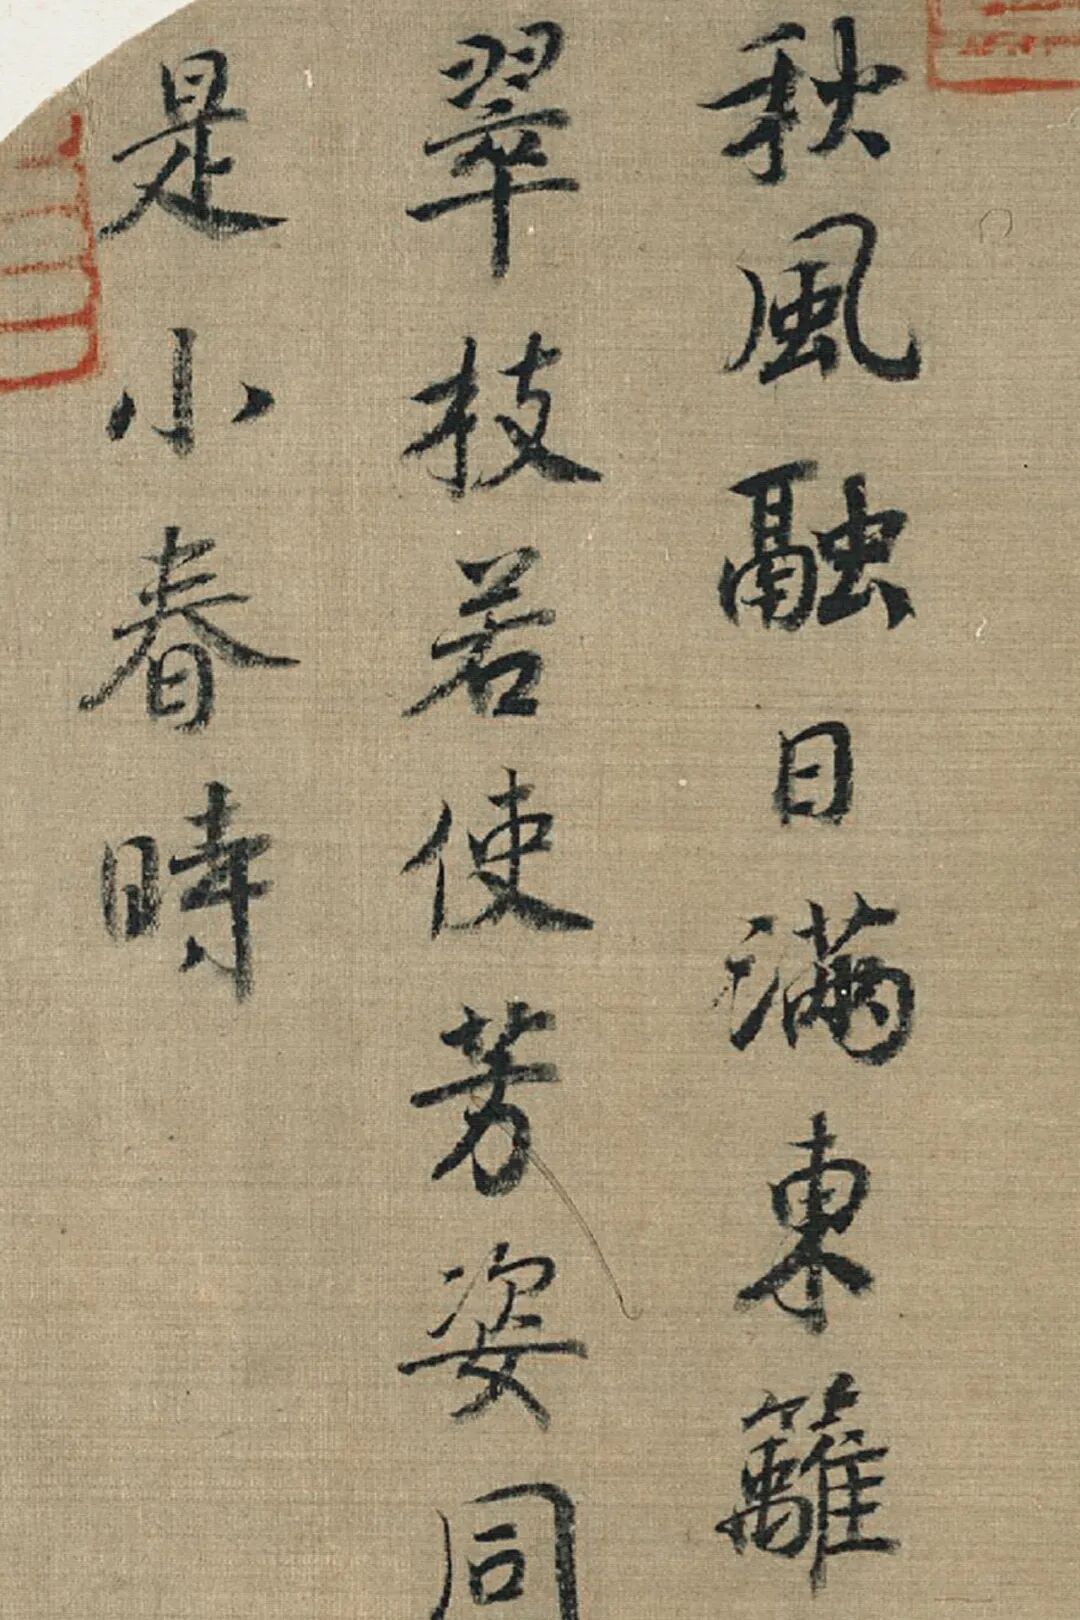 秋風融日滿東籬
翠枝若使芳姿同
是小春時